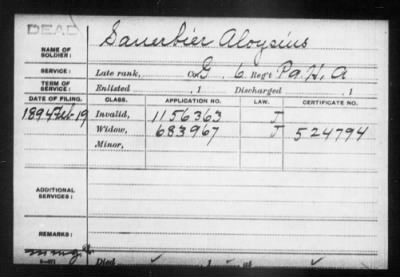 DEAD
NAME OF SOLDIER: Sauerbier Aloysius
SERVICE: Late rank, Co. G, 6 Reg't Pa. H. A
TERM OF SERVICE: Enlisted , 1 Discharged , 1
DATE OF FILING. CLASS. APPLICATION NO. LAW. CERTIFICATE NO.
1894 Feb 19 Invalid, 1156363 J
Widow, 683967 J 524794
Minor,
ADDITIONAL SERVICES:
REMARKS:
Died